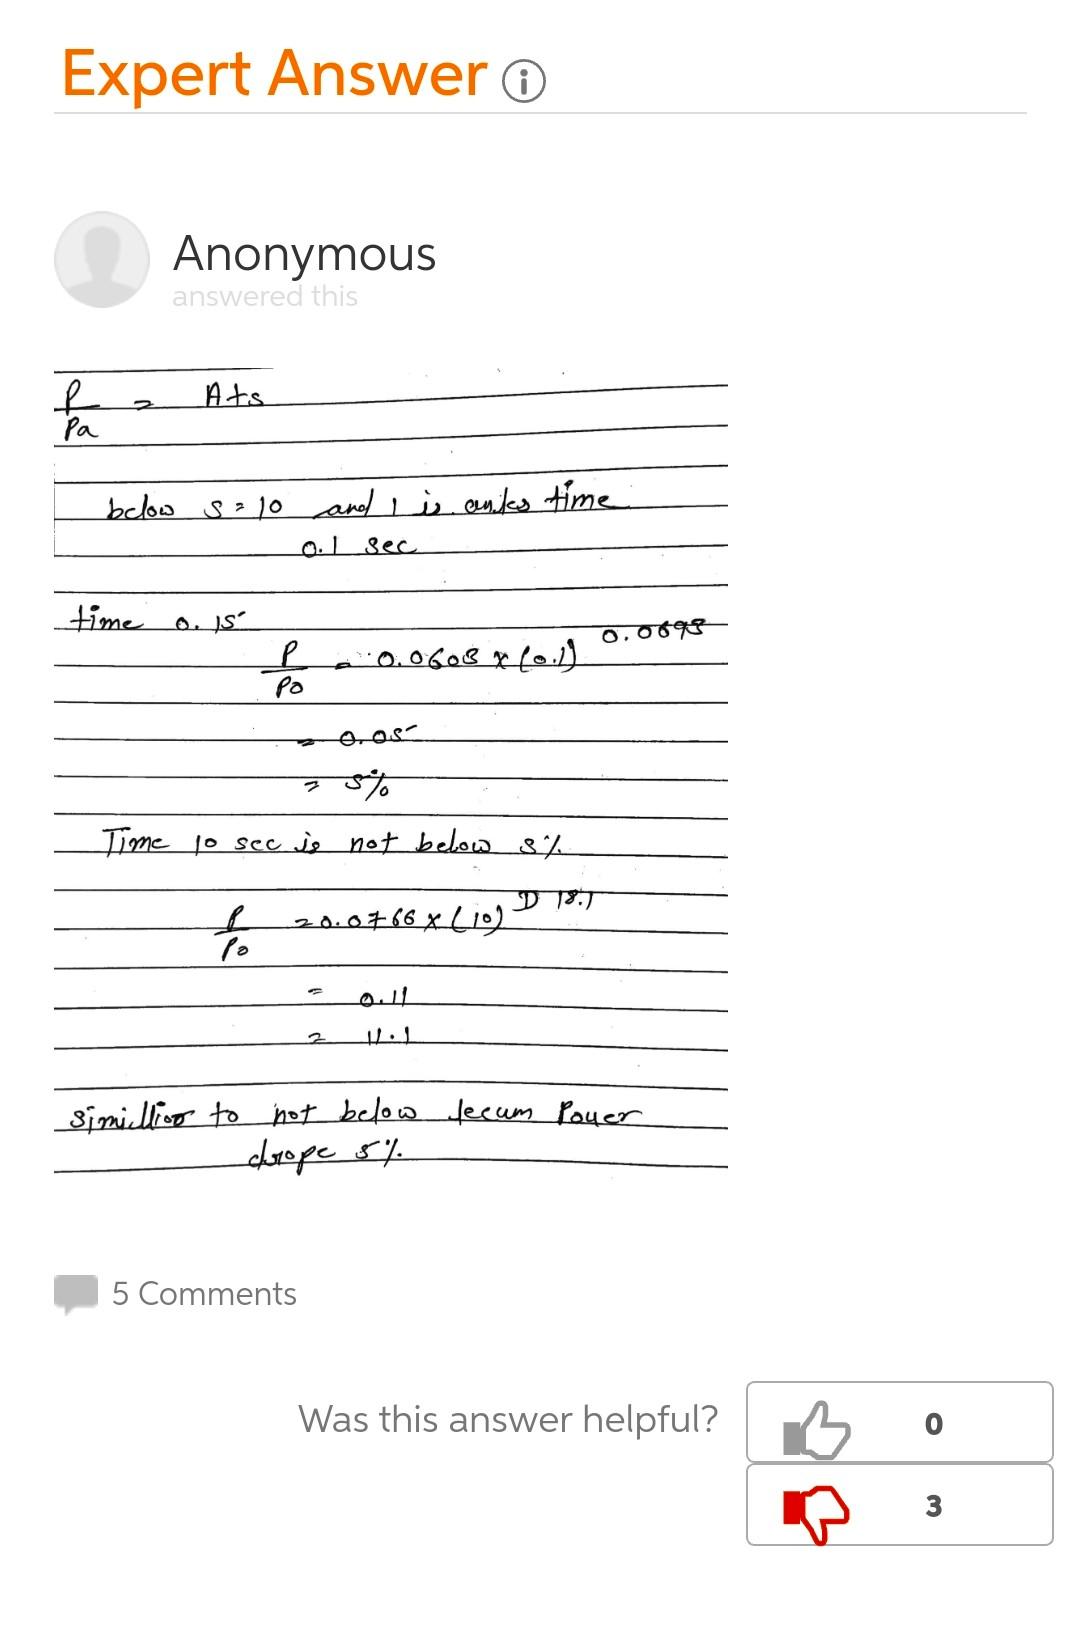 Expert Answer
Anonymous
answered this
P/Pa = Ats
below S = 10 and 1 is time
0.1 sec
time 0.15
P/Po = 0.0603 x (0.1) 0.0695
= 0.05
= 5%
Time 10 sec is not below 5%
P/Po = 0.0766 x (10) 18.1
= 0.11
= 11.1
to not below Power
drope 5%.
5 Comments
Was this answer helpful?
0
3